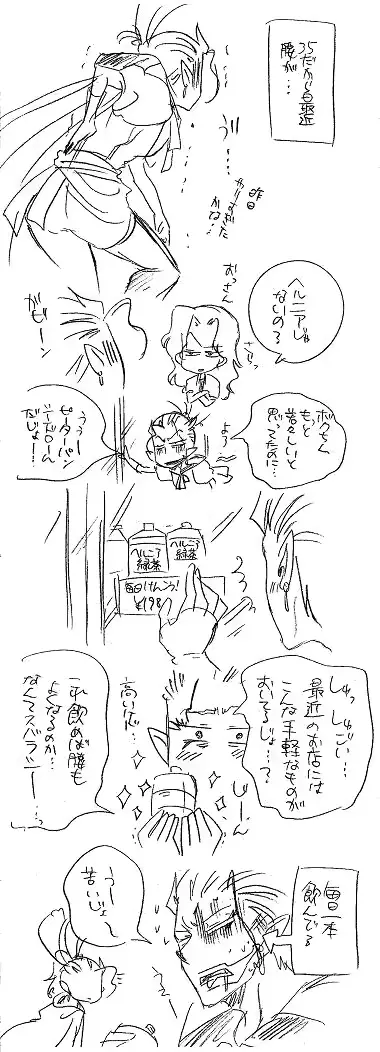 35だから最近
腰が…
う…
昨日
やりすぎた
かな…
ヘルニアじゃ
ないの?
おっさん
ガビーン
ボクちゃん
もっと
若々しいと
思ってたのに…
よう
うう…
ピーターパン
だじょー!
ヘルニア
緑茶
ヘルニア
緑茶
毎日けんこう!
¥198
しゅっしゅごい…
最近のお店には
こんな手軽なものが
おいてるじょ…?
高いが…
じーん
これ飲めば腰も
よくなるのか…
なんてスバラシー…
毎日一本
飲んでる
うー
苦いじょ~